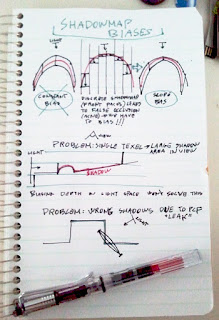 SHADOWMAP
BIASES
CONSTANT
BIAS
DISCRETE SHADOWMAP
(FRONT FACES) LEADS
TO FALSE OCCLUSION
(ACNE) → WE HAVE
TO BIAS!!!
SLOPE
BIAS
PROBLEM: SINGLE TEXEL → LARGE SHADOW
AREA IN VIEW
LIGHT
SHADOW
BIASING DEPTH IN LIGHT SPACE WON'T SOLVE THIS
PROBLEM: WRONG SHADOWS DUE TO PCF
"LEAK"